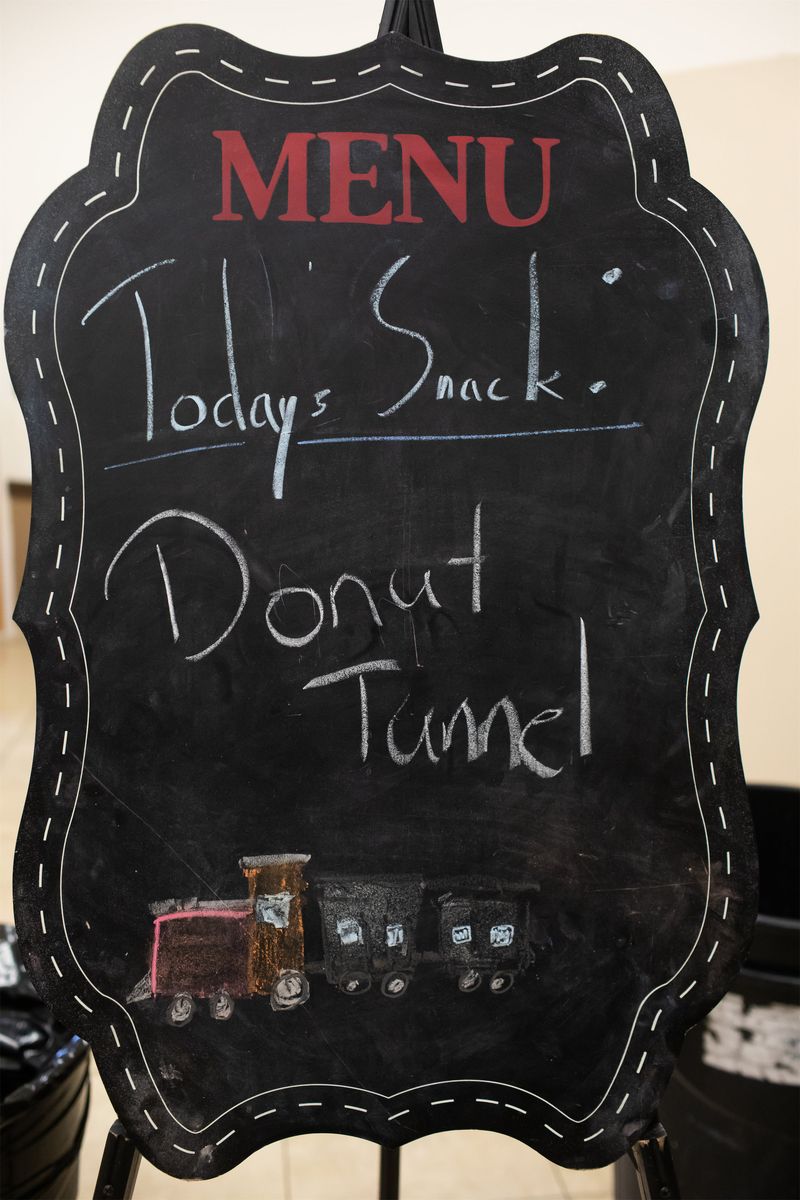 MENU
Today's Snack:
Donut
Tunnel